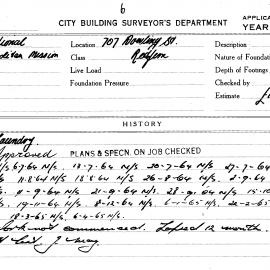 6
CITY BUILDING SURVEYOR'S DEPARTMENT
APPLICA
YEAR
Location 707 Bowling St. Description
Mission Class Redfern Nature of Foundation
Live Load Depth of Footings
Foundation Pressure Checked by
Estimate
HISTORY
Laundry
Approved PLANS & SPECN. ON JOB CHECKED
6-7-64 N/S 13-7-64 N/S 20-7-64 N/S 27-7-64
N/S 11-8-64 N/S 18-8-64 N/S 26-8-64 N/S 2-9-64
11-9-64 N/S 21-9-64 N/S 28-9-64 N/S 15-10
N/S 19-11-64 N/S 8-12-64 N/S 6-1-65 N/S 22-2-65
18-3-65 N/S 6-4-65 N/S.
Work not commenced. Lapsed 12 month.